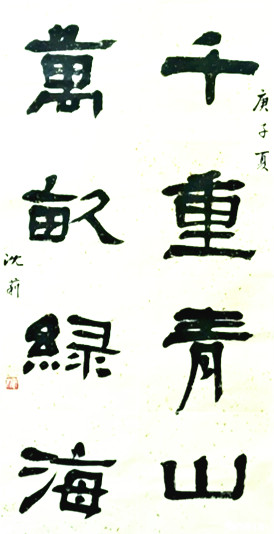 千重青山
萬畝綠海
庚子夏
沈莉